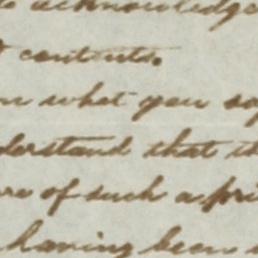 to acknowledge
contents.
what you say
understand that
of such a
having been